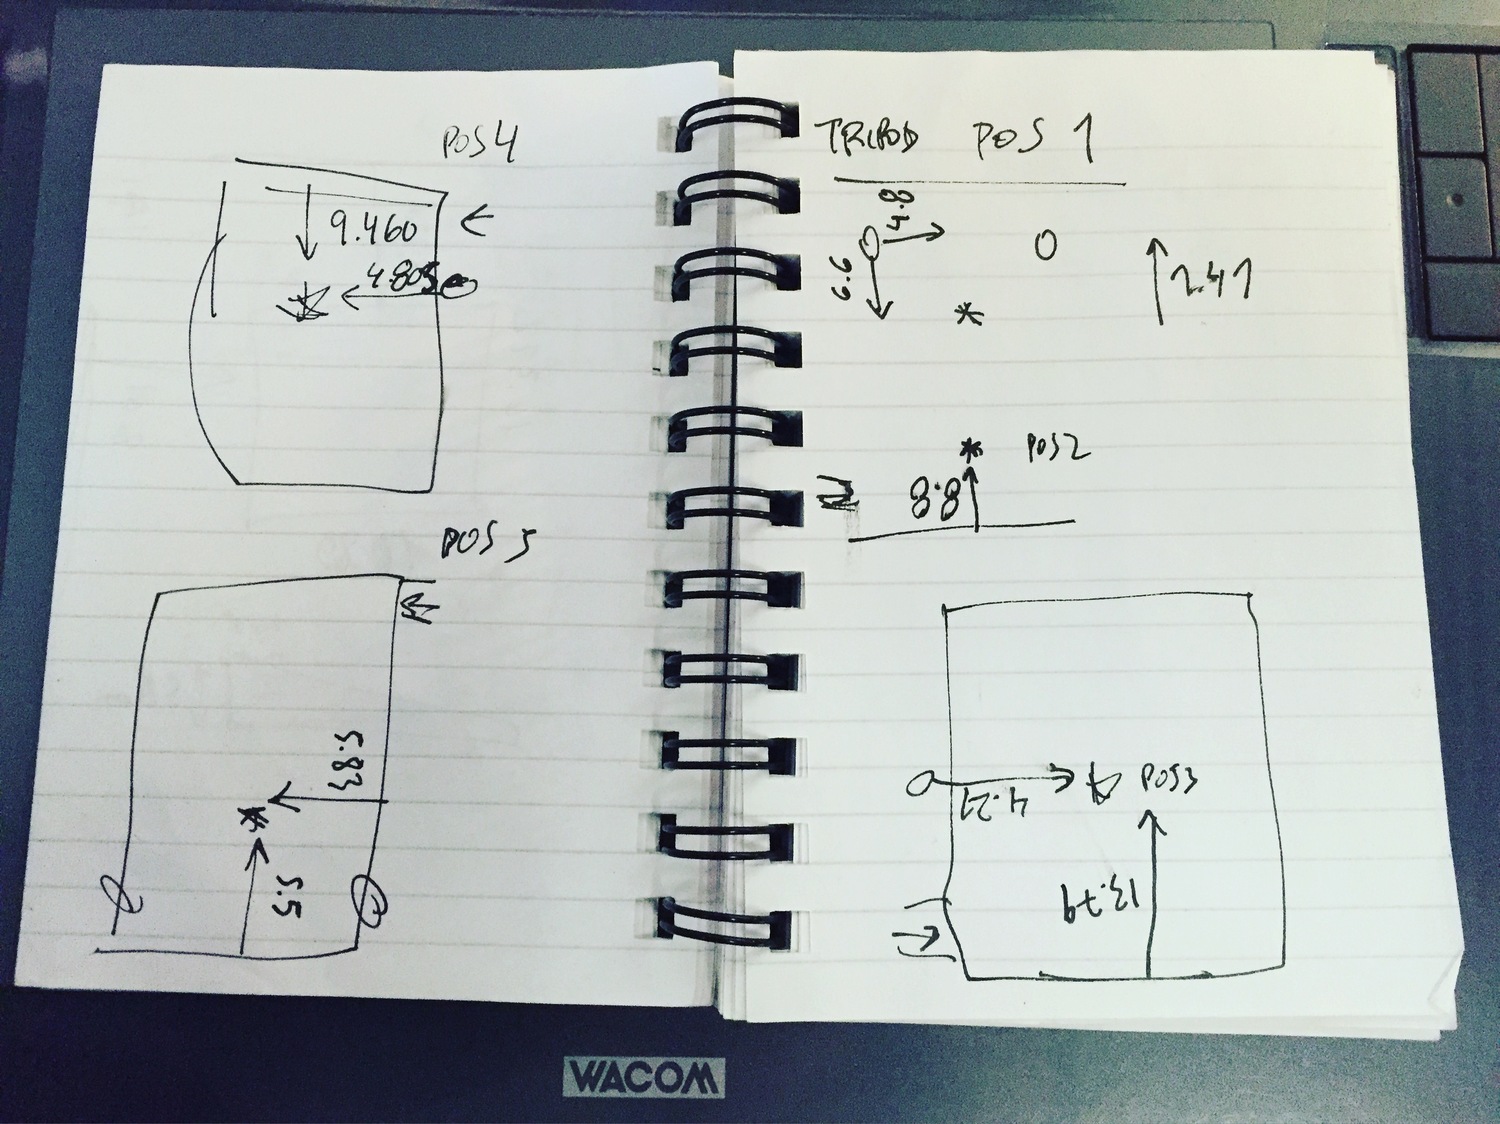 POS 4
9.460
4.805
POS 5
5.83
5.5
TRIPOD POS 1
4.8
6.6
1.41
POS2
8.8
POS3
4.21
13.79
WACOM